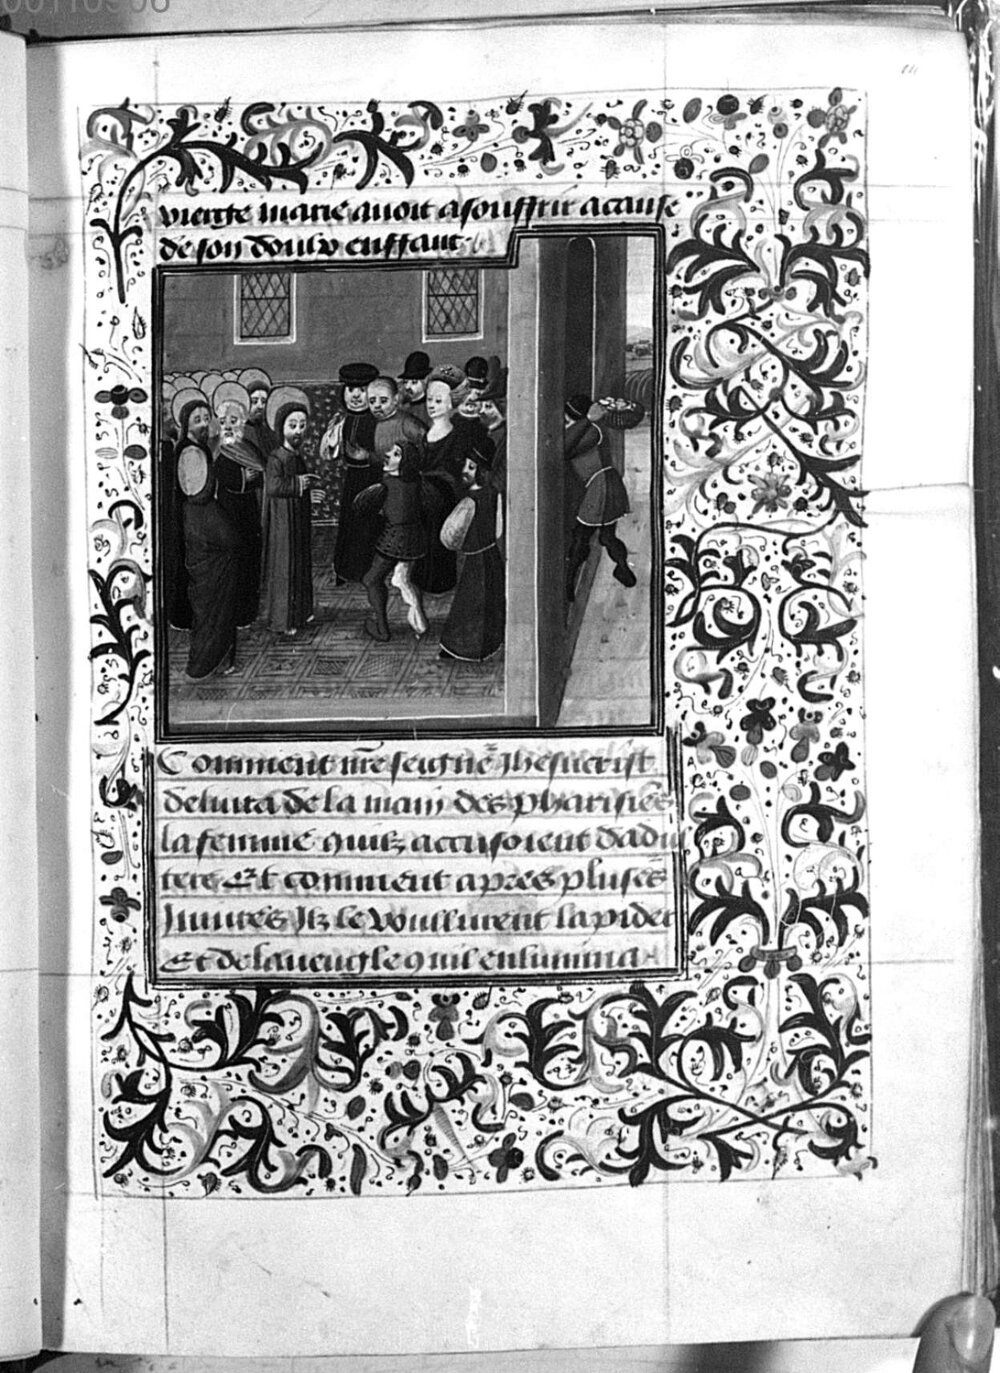 00110906
vierge marie auoit a souffrir a cause
de son doulx enffant
Comment nr̃e seigne᷑ Jhesucrist
deliura de la main des pharisiẽs
la femme quilz accusoient dadul
tere Et comment apres pluseᷣs
Jniures Jlz le voullurent lapider
Et de laueugle quil enlumina